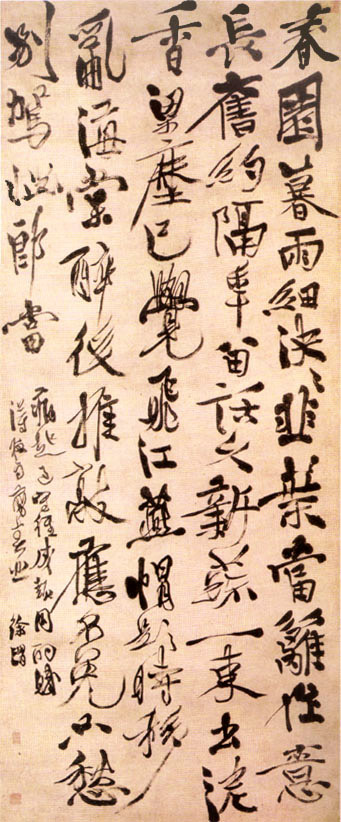 春園暮雨細泱〻韭葉當籬作意
長舊約隔年留話久新蔬一束出泥
香梁塵已覺飛江燕帽影時移
亂海棠醉後推敲應不免只愁
別駕惱郎當
徐渭